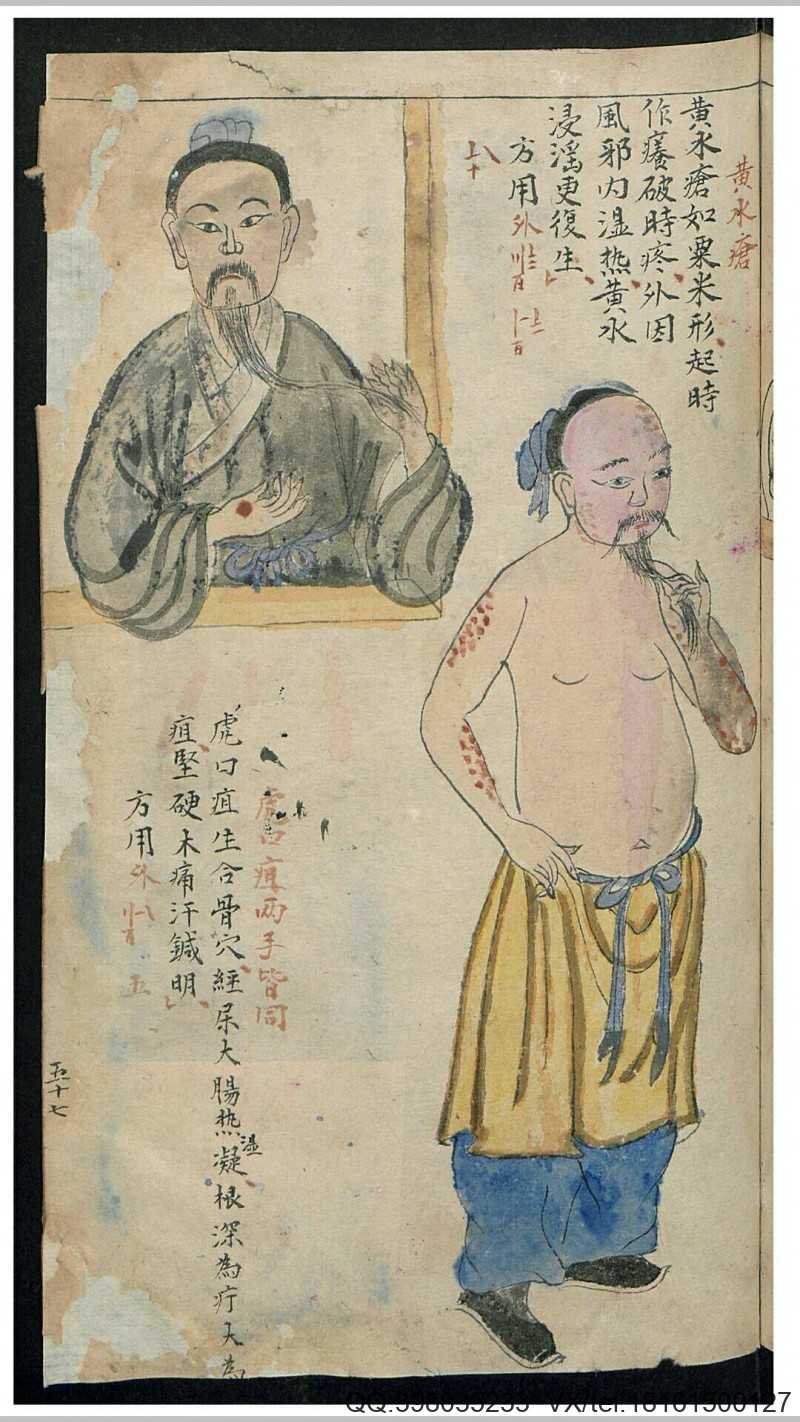 黄水瘡
黄水瘡如粟米形起時
作癢破時疼外因
風邪内湿热黄水
浸淫更復生
方用外
虎口疽两手皆同
虎口疽生合骨穴經屎大腸热湿凝根深為疔大為
疽堅硬木痛汗鍼明
方用外
五
五十七